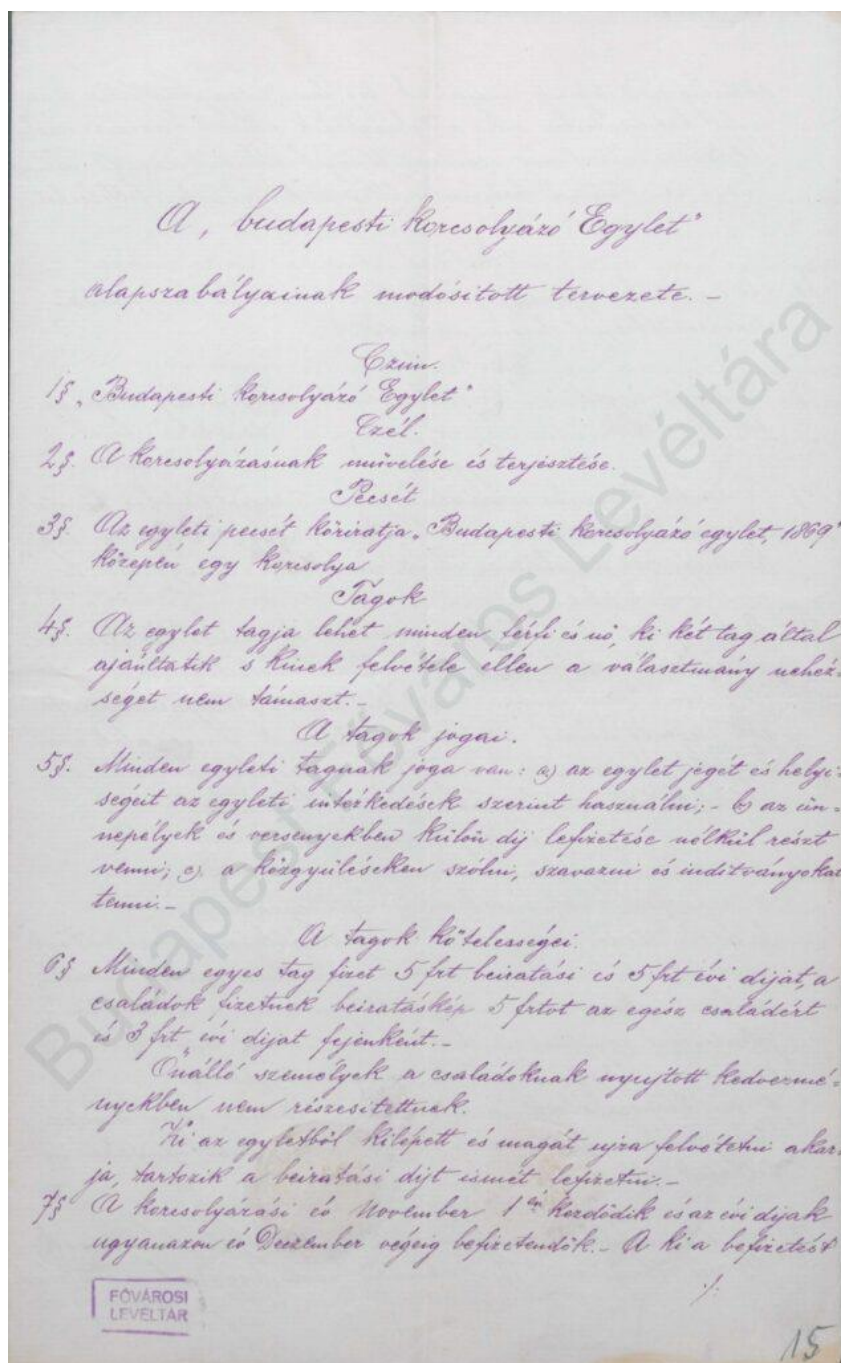 A „budapesti korcsolyázó Egylet"
alapszabályainak módósitott tervezete. –
Czim.
1§ „Budapesti korcsolyázó Egylet"
Czél.
2§. A korcsolyázásnak művelése és terjesztése.
Pecsét
3§. Az egyleti pecsét köriratja „Budapesti korcsolyázó egylet, 1869"
közepén egy korcsolya
Tagok
4§. Az egylet tagja lehet minden férfi és nő, ki két tag által
ajánltatik s kinek felvétele ellen a választmány nehéz-
séget nem támaszt. –
A tagok jogai.
5§. Minden egyleti tagnak joga van: a) az egylet jegét és helyi-
ségeit az egyleti intézkedések szerint használni; – b) az ün-
nepélyek és versenyekben külön díj lefizetése nélkül részt
venni; c) a közgyűléseken szólni, szavazni és inditványokat
tenni. –
A tagok kötelességei.
6§ Minden egyes tag fizet 5 frt beiratási és 5 frt évi dijat, a
családok fizetnek beiratáskép 5 frtot az egész családért
és 3 frt évi dijat fejenként. –
Önálló személyek a családoknak nyujtott kedvezmé-
nyekben nem részesittetnek.
Ki az egyletből kilépett és magát ujra felvétetni akar-
ja, tartozik a beiratási dijt ismét lefizetni. –
7§ A korcsolyázási év November 1én kezdődik és az évi dijak
ugyanazon év Deczember végéig befizetendők. – A ki a befizetést
./.
FŐVÁROSI
LEVÉLTÁR
15
Budapest Főváros Levéltára